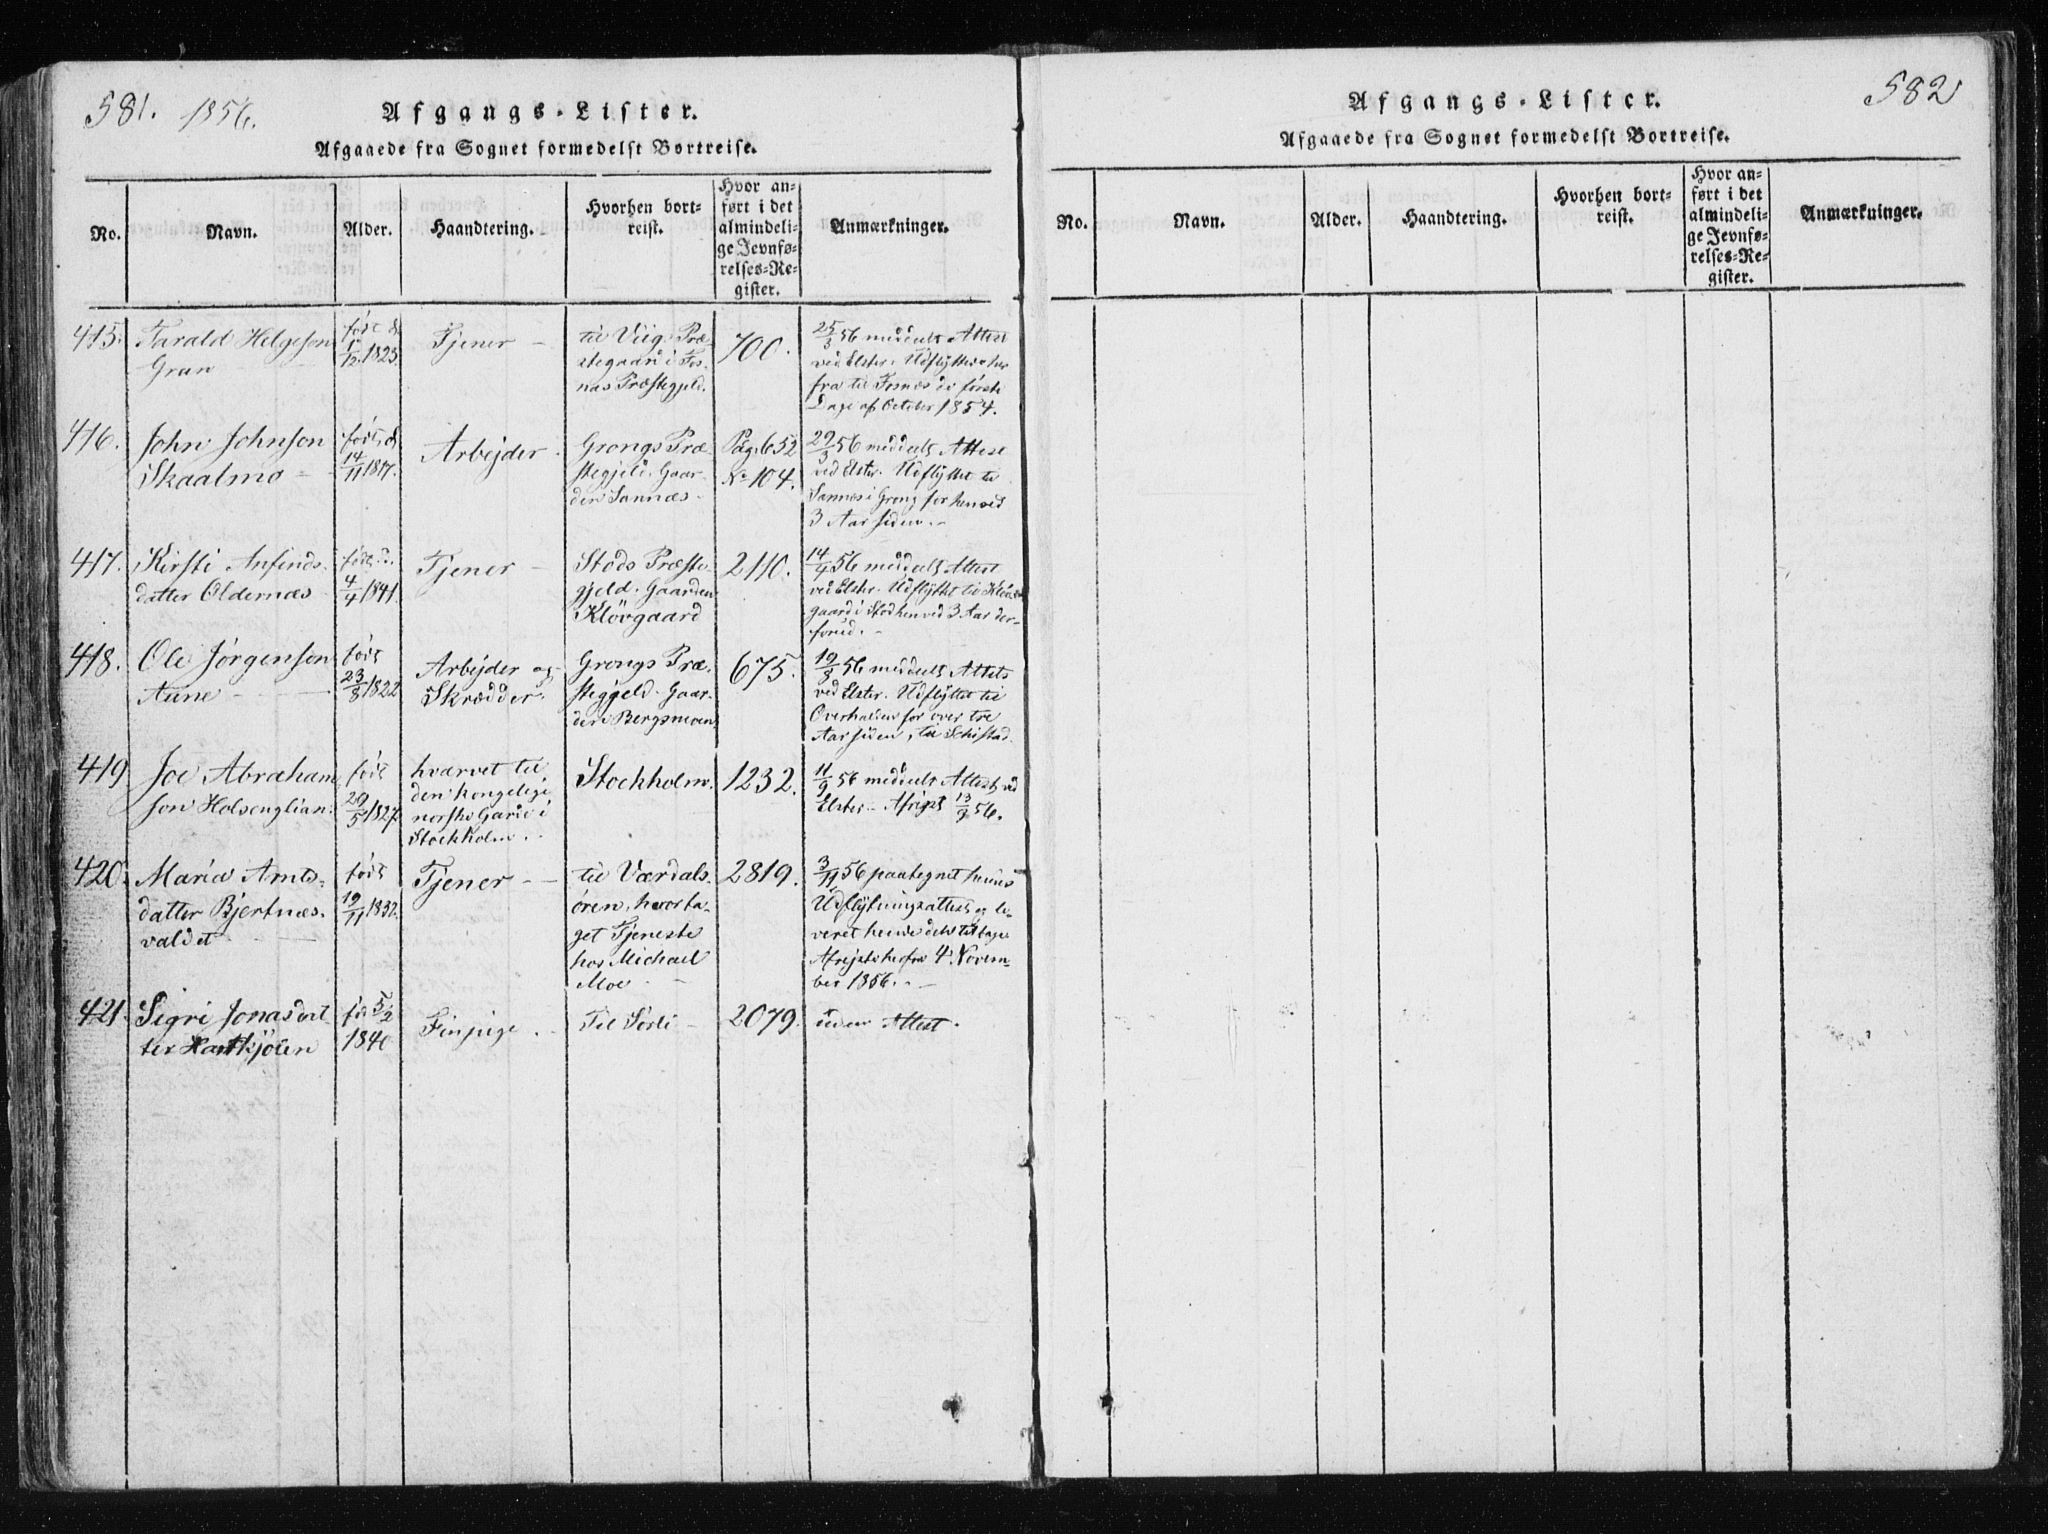 581. 1856.
Afgangs-Lister.
Afgaaede fra Sognet formedelst Bortreise.
No.
Navn.
Alder.
Haandtering.
Hvorhen bort-
reist.
Hvor an-
ført i det
almindeli-
ge Jevnfø-
relses-Re-
gister.
Anmærkninger.
415.
Tarald Helgeson
Gran
født d.
1/12 1823.
Tjener -
til Viigs Præ-
stegaard i Fos-
nas Præstegjeld.
700.
25/3 56 meddeelt Attest
ved Elster. Udflyttet her
fra til Fosnæs de første
Dage af October 1854.
416.
John Johnson
Skaalmo -
født d.
14/11 1817.
Arbejder.
Grongs Præ-
stegjeld. Gaar-
den Sannæs -
Pag. 652
No 104.
29/3 56 meddeelt Attest
ved Elster. Udflyttet til
Sannæs i Grong for henved
3 Aar siden. -
417.
Kirsti Anfinds-
datter Oldernæs
født d.
4/4 1841.
Tjener -
Stods Præste-
gjeld. Gaarden
Kløvgaard
2110.
14/4 56 meddeelt Attest
ved Elster. Udflyttet til Kløv-
gaard i Stod henved 3 Aar der-
forud. -
418.
Ole Jørgenson
Aune -
født
23/8 1822
Arbejder og
Skrædder.
Grongs Præ-
stegjeld. Gaar-
den Bergsmoen
675.
19/8 56 meddeelt Attest
ved Elster. Udflyttet til
Overhalden for over tre
Aar siden, til Schistad.
419
Joe Abraham
son Holsenglian.
født
20/5 1827.
hvervet til
den kongelige
norske Garde i
Stockholm.
Stockholm.
1232.
11/9 56 meddeelt Attest ved
Elster - Afrejst 13/9 56.
420.
Maria Arnts-
datter Bjertnæs-
valdet
født
19/11 1832.
Tjener -
til Værdals-
øren, hvor ta-
get Tjeneste
hos Michael
Moe -
2819.
3/11 56 paategnet hendes
Udflytningsattest og le-
veret hende dets tilbage
Afrejst herfra 4. Novem-
ber 1856. -
421.
Sigri Jonasdat
ter Hartkjølen
fød 5/2
1840
Finpige.
Til Sørli -
2079.
uden Attest.
582
Afgangs-Lister.
Afgaaede fra Sognet formedelst Bortreise.
No.
Navn.
Alder.
Haandtering.
Hvorhen bort-
reist.
Hvor an-
ført i det
almindeli-
ge Jevnfø-
relses-Re-
gister.
Anmærkninger.